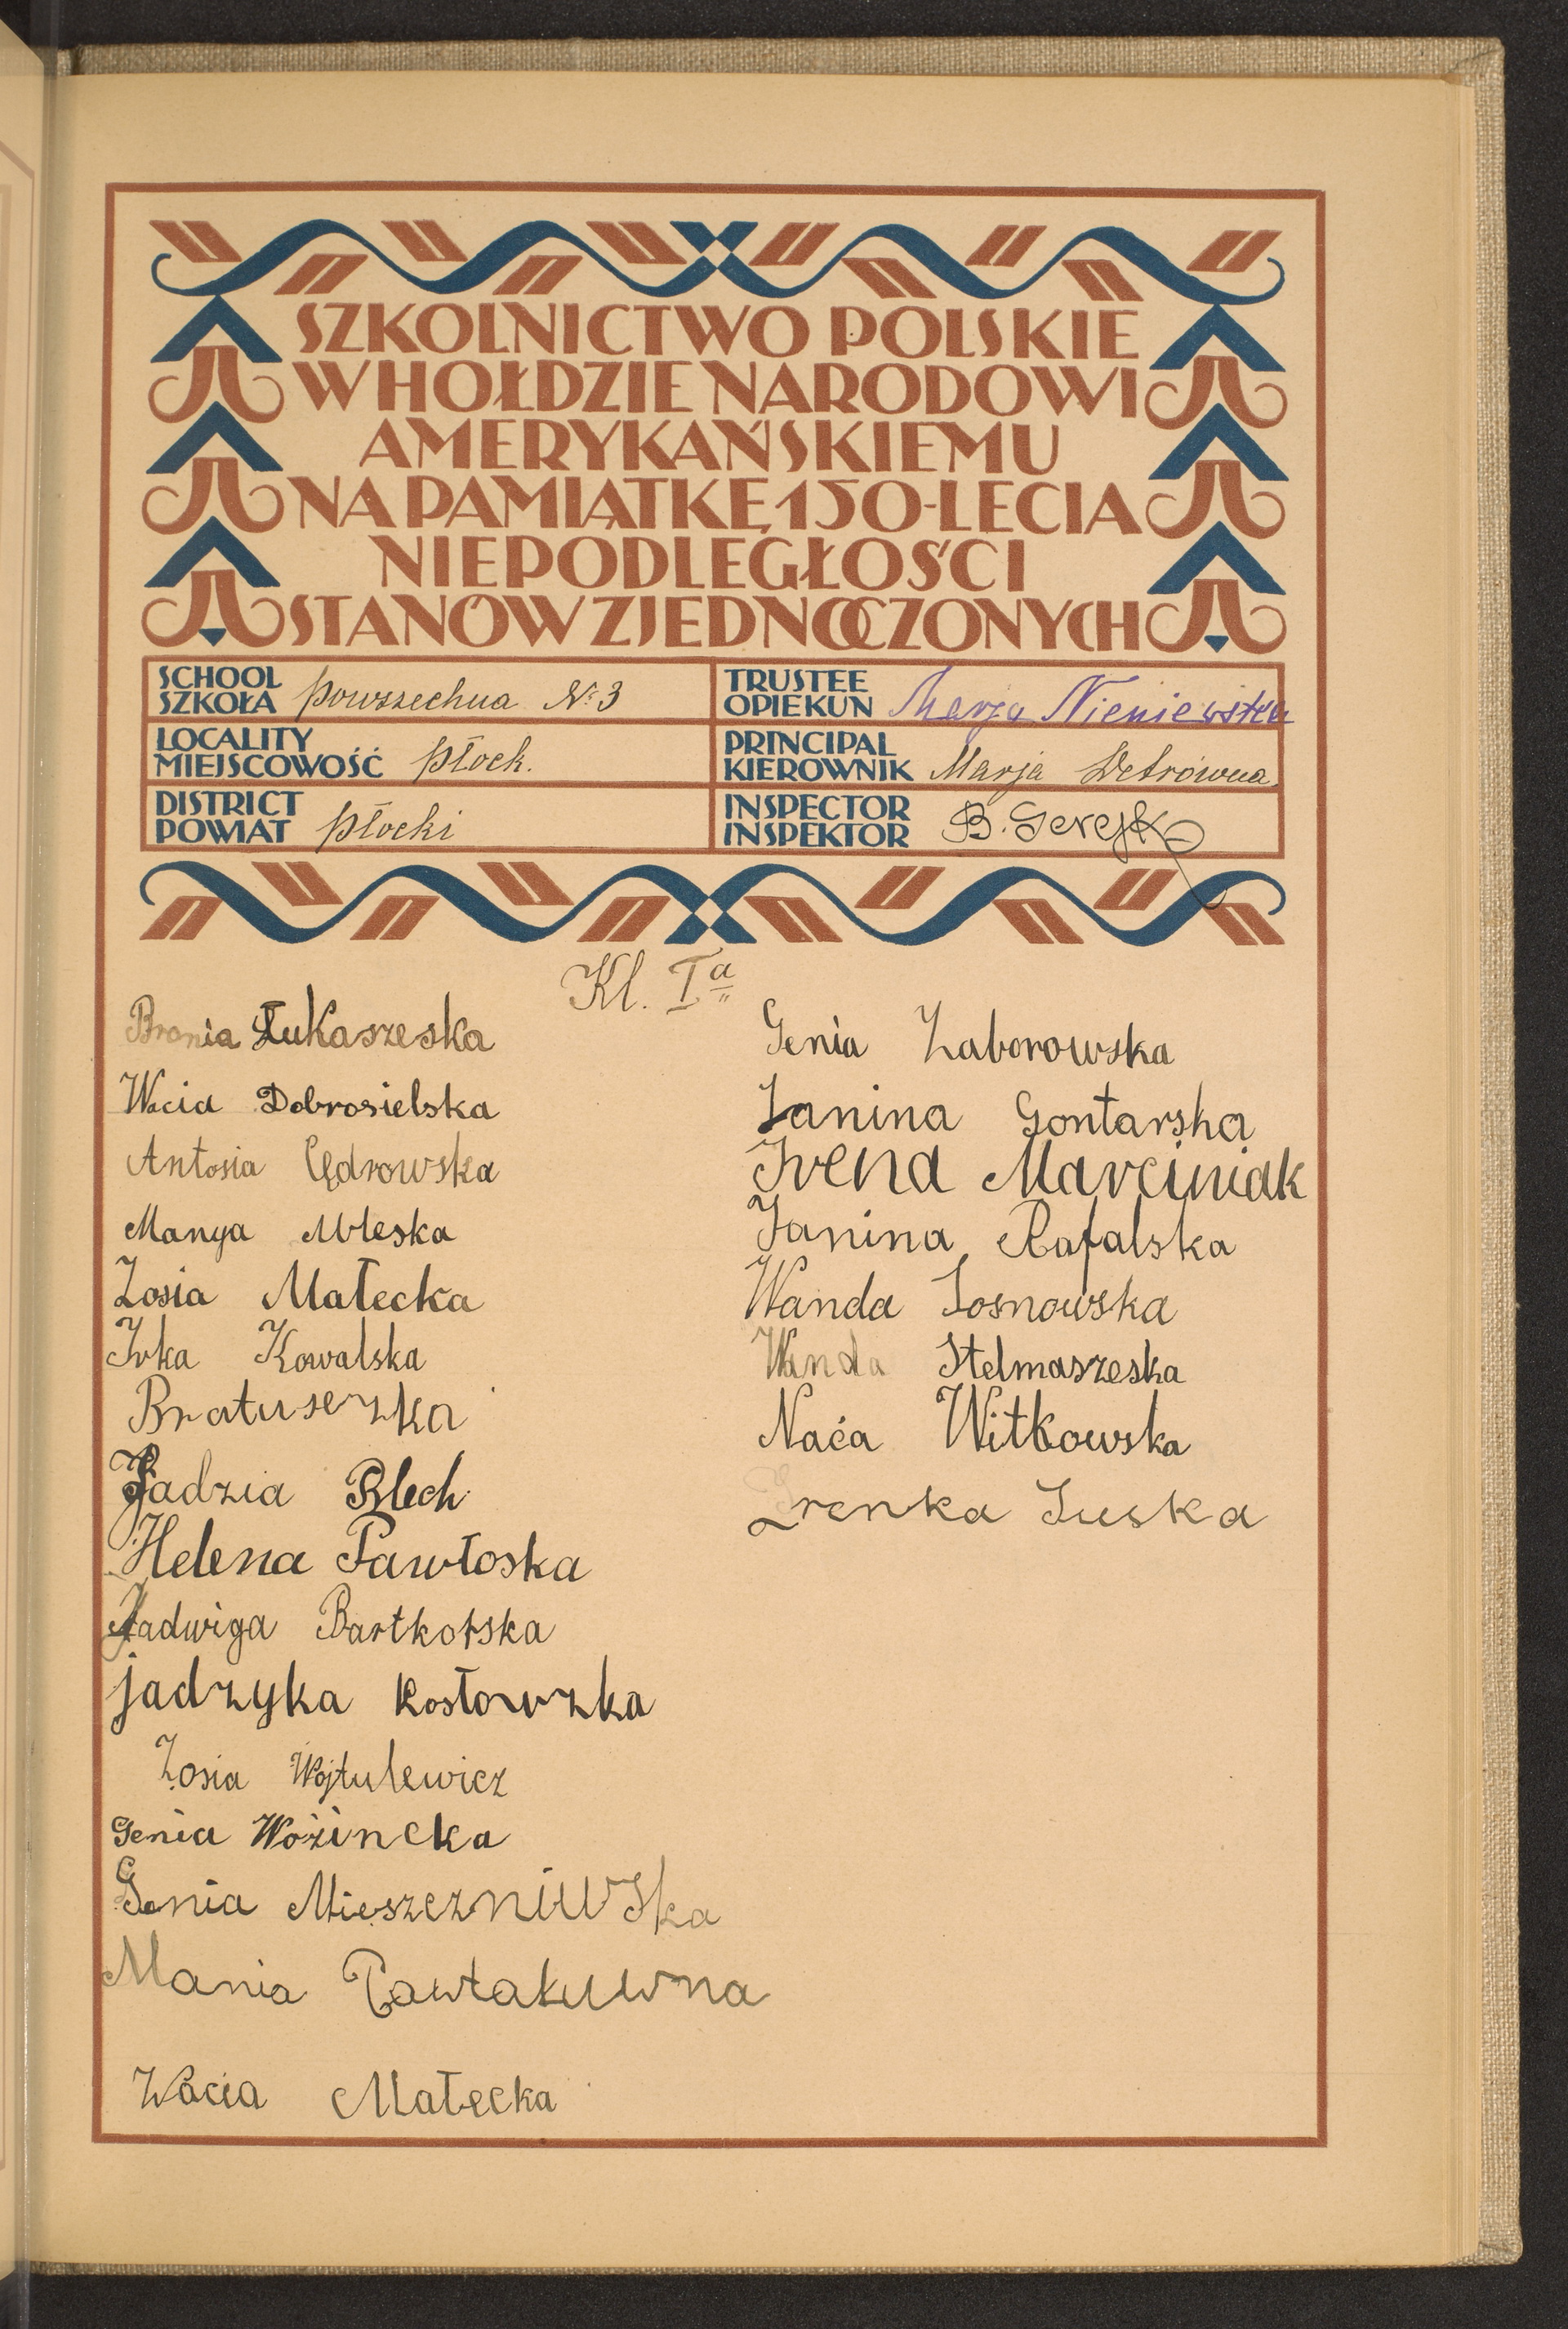 SZKOLNICTWO POLSKIE
W HOŁDZIE NARODOWI
AMERYKAŃSKIEMU
NA PAMIĄTKĘ 150-LECIA
NIEPODLEGŁOŚCI
STANÓW ZJEDNOCZONYCH
SCHOOL
SZKOŁA powszechna № 3
LOCALITY
MIEJSCOWOŚĆ Płock.
DISTRICT
POWIAT Płocki
TRUSTEE
OPIEKUN Marja Nieniewska
PRINCIPAL
KIEROWNIK Marja
INSPECTOR
INSPEKTOR B.
Kl. Iª
Bronia Łukaszeska
Wacia Dobrosielska
Antosia Cędrowska
Manya Mleska
Zosia Małecka
Irka Kowalska
Bratuszezka
Jadzia Blech
Helena Pawłoska
Jadwiga Bartkoska
jadzyka Kosłowzka
Zosia Wojtulewicz
Genia Woźincka
Genia Mieszezniwska
Mania Pawłakuwna
Wacia Małecka
Genia Zaborowska
Janina Gontarska
Irena Marciniak
Janina Rafalska
Wanda Sosnowska
Wanda Stelmaszeska
Naća Witkowska
Irenka Suska